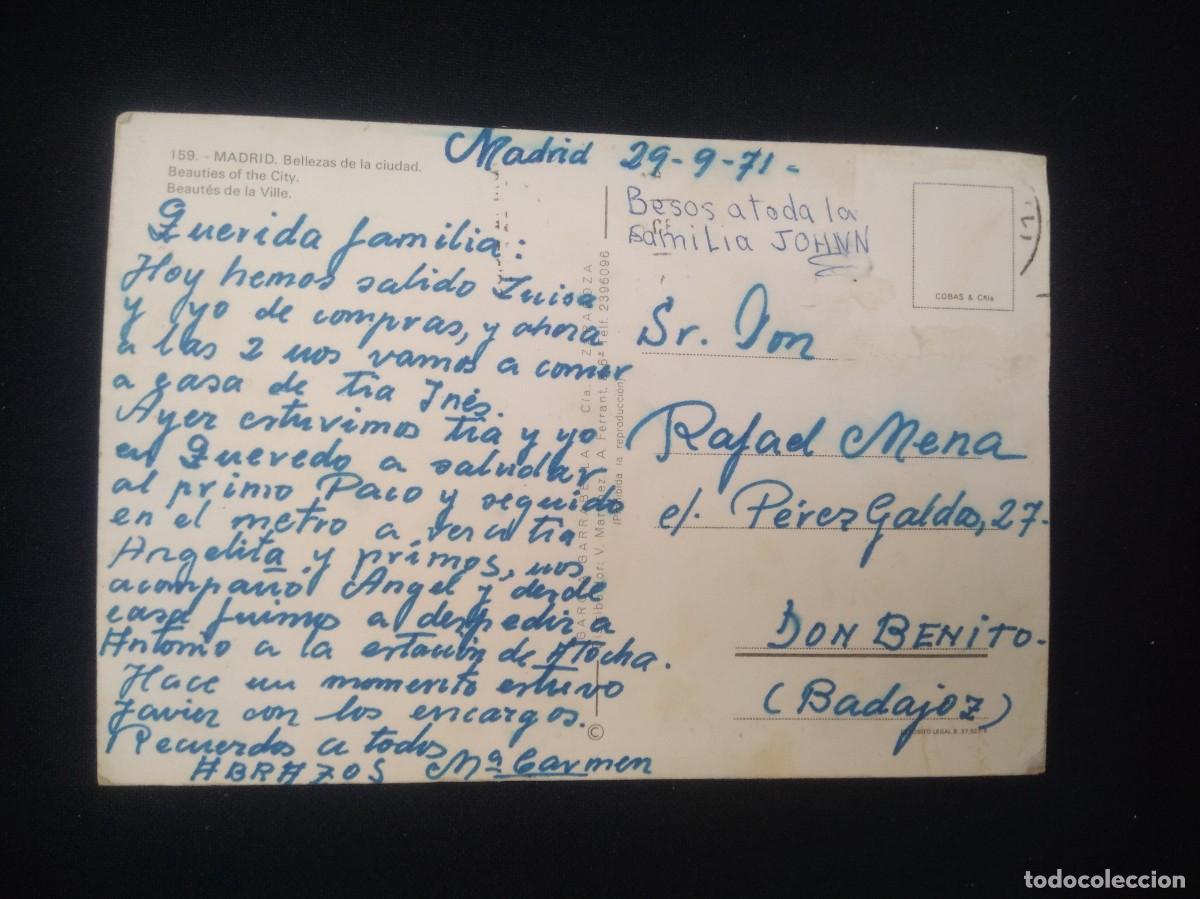 159. - MADRID. Bellezas de la ciudad.
Beauties of the City.
Beautés de la Ville.
Madrid 29-9-71-
Querida familia:
Hoy hemos salido Luisa
y yo de compras, y ahora
a las 2 nos vamos a comer
a casa de tia Inés.
Ayer estuvimos tia y yo
en Quevedo a saludar
al primo Paco y seguido
en el metro a ver a tia
Angelita y primos, nos
acompañó Angel y desde
casa fuimos a despedir a
Antonio a la estación de Atocha.
Hace un momento estuvo
Javier con los encargos.
Recuerdos a todos
ABRAZOS Mª Carmen
GARCIA GARRABELLA Y Cía. ZARAGOZA
V. Martínez, A. Ferrant, Telf. 2396096
(Prohibida la reproducción)
©
Besos a toda la
familia JOHNN
COBAS & CÑIa
Sr. Don
Rafael Mena
c/. Pérez Galdos, 27-
DON BENITO-
(Badajoz)
DEPOSITO LEGAL B.
todocoleccion